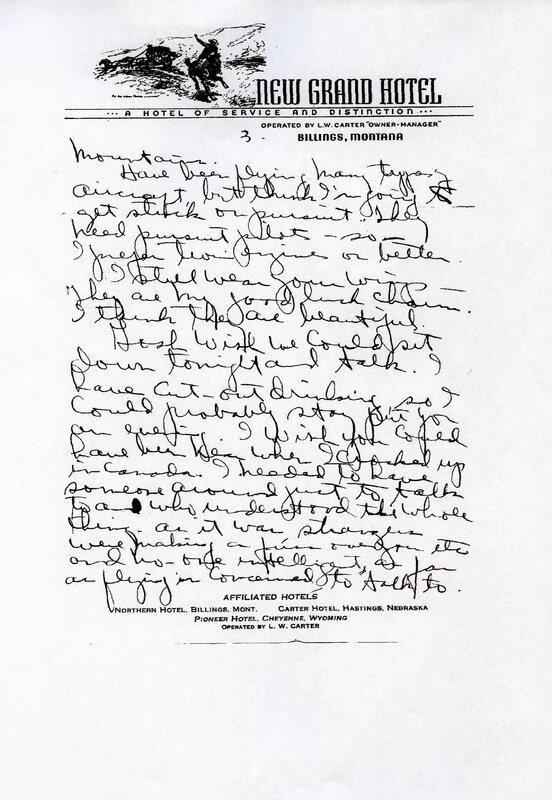 NEW GRAND HOTEL
A HOTEL OF SERVICE AND DISTINCTION
OPERATED BY L.W. CARTER "OWNER-MANAGER"
BILLINGS, MONTANA
3
Mountains.
Have been flying many types
aircraft but think I'm going to
get stuck on pursuit. They
need pursuit pilots - so
I prefer twin engine or better.
I still wear your wings
They are my good luck charm.
I think they are beautiful.
Gosh wish we could sit
down tonight and talk. I
have cut-out drinking, so I
could probably stay put
an evening. I wish you could
have been near when I cracked up
in Canada. I needed to have
someone around just to talk
to and who understood the whole
thing as it was strangers
were making a fuss over you etc
and no-one intelligent, as far
as flying is concerned, to talk to.
AFFILIATED HOTELS
NORTHERN HOTEL, BILLINGS, MONT. CARTER HOTEL, HASTINGS, NEBRASKA
PIONEER HOTEL, CHEYENNE, WYOMING
OPERATED BY L. W. CARTER